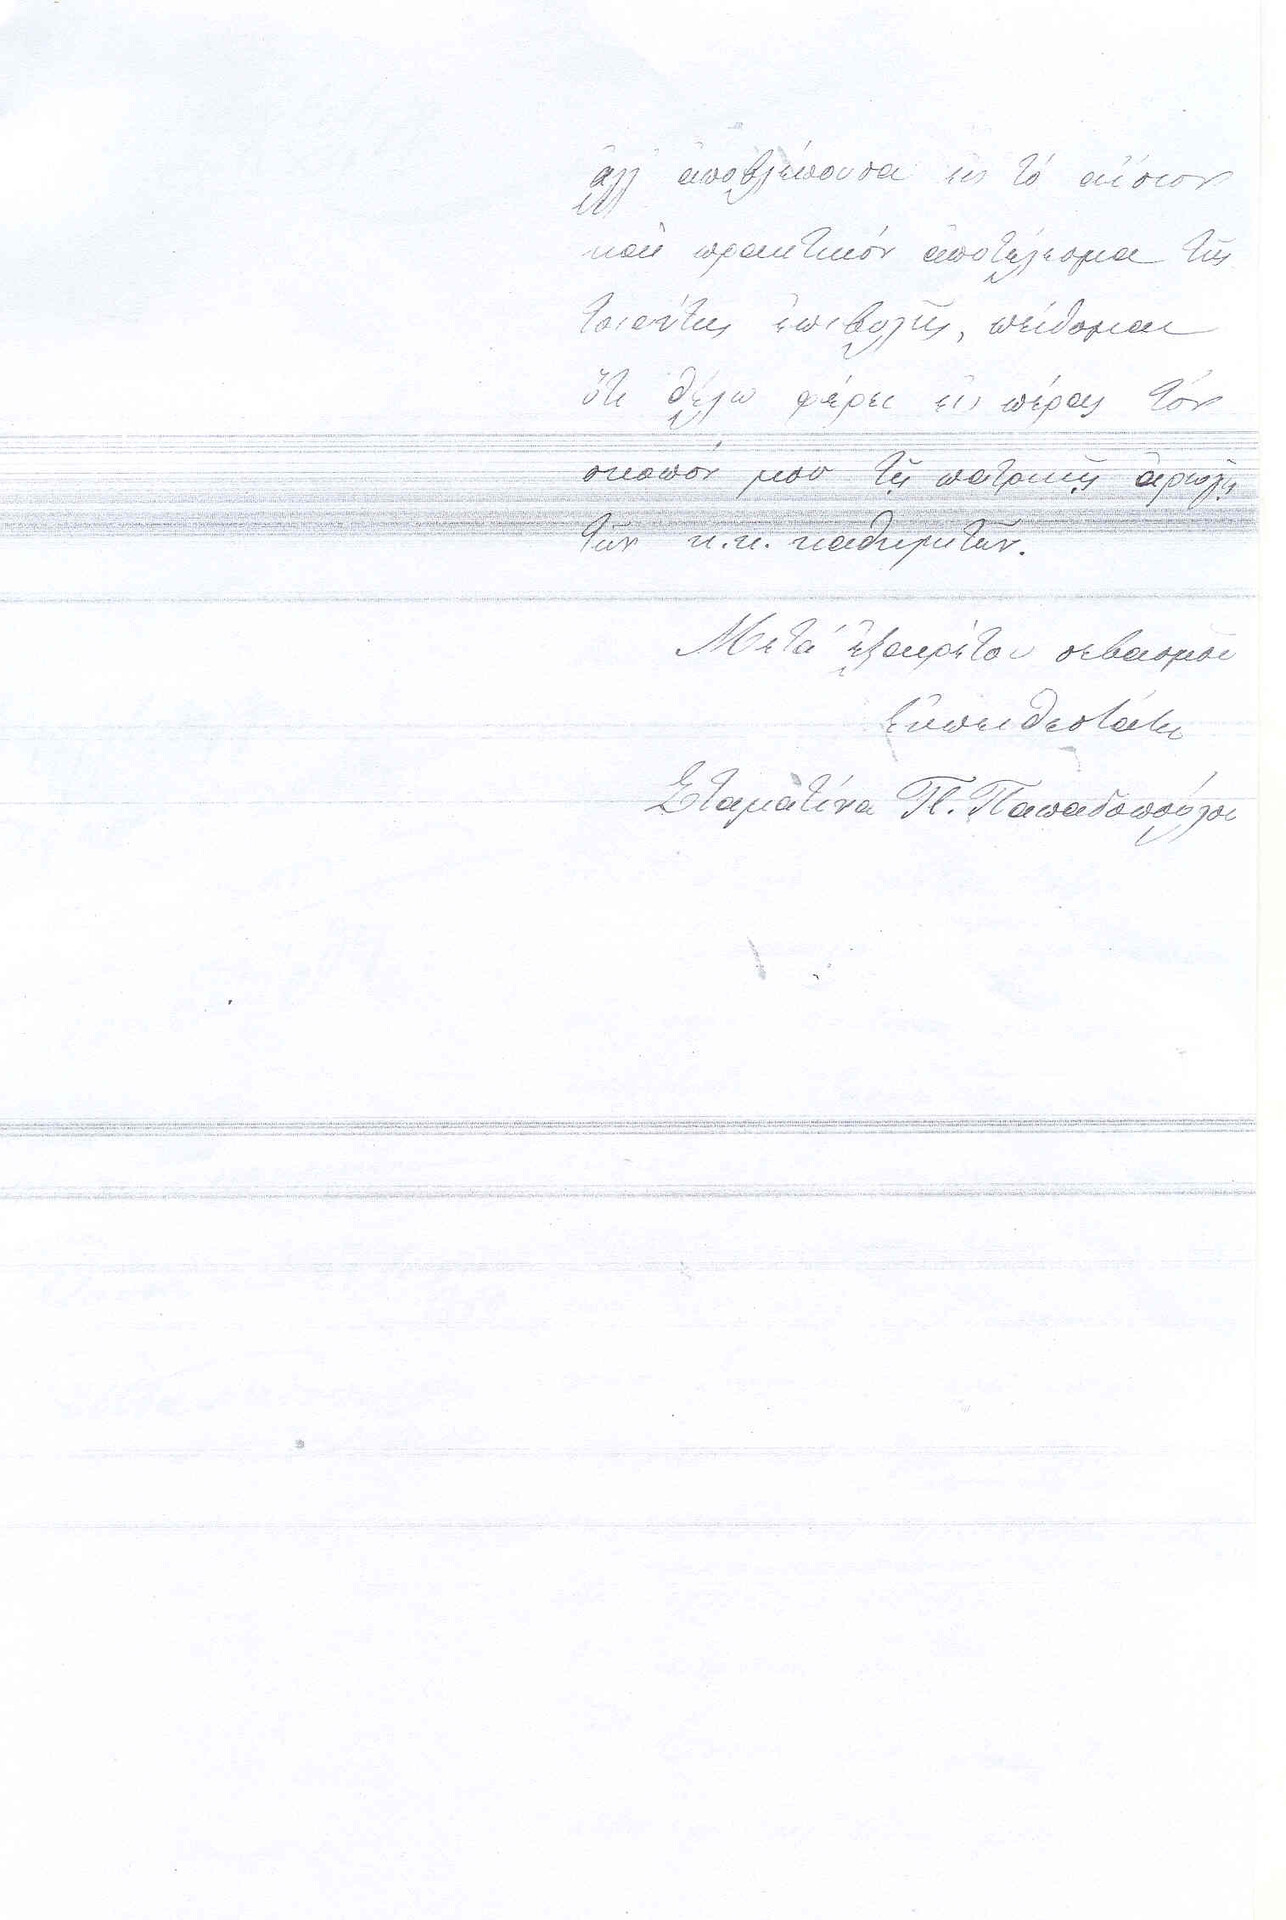 ἀλλ' ἀποβλέπουσα εἰς τό αἴσιον
καί πρακτικόν ἀποτέλεσμα τῆς
τοιαύτης ἐπιβολῆς, πείθομαι
ὅτι θέλω φέρει εἰς πέρας τόν
σκοπόν μου τῇ πατρικῇ ἀρωγῇ
τῶν κ.κ. καθηγητῶν.
Μετά ἐξαιρέτου σεβασμοῦ
Εὐπειθεστάτη
Σταματίνα Π. Παπαδοπούλου